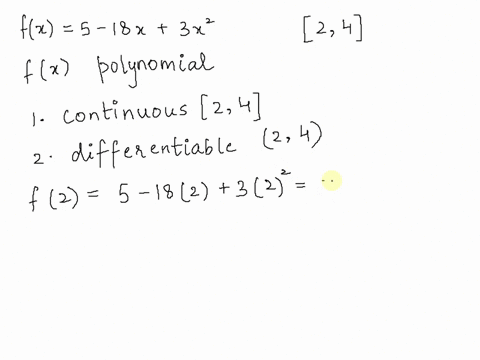 f(x) = 5 - 18x + 3x² [2, 4]
f(x) polynomial
1. continuous [2, 4]
2. differentiable (2, 4)
f(2) = 5 - 18(2) + 3(2)² =